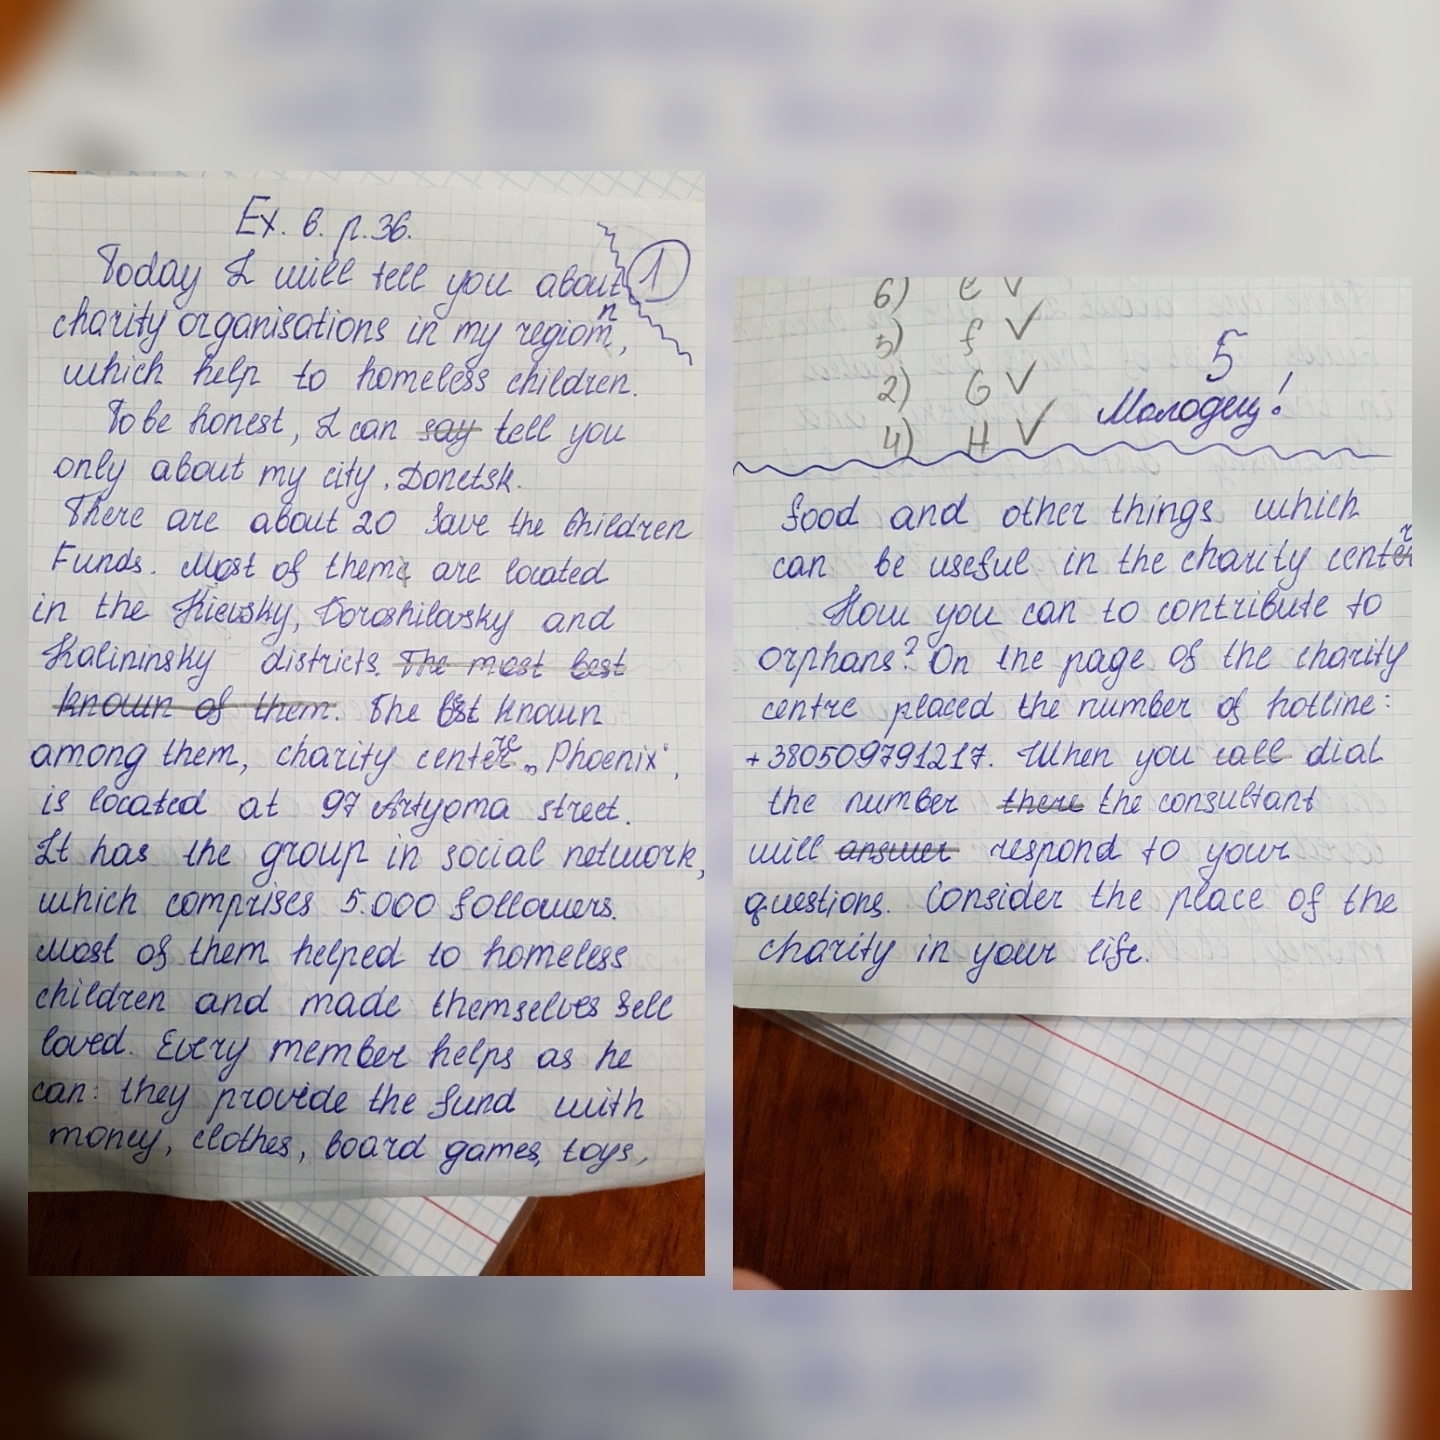 Ex. 6. p. 36.
1
Today I will tell you about
charity organisations in my region,
which help to homeless children.
To be honest, I can say tell you
only about my city, Donetsk.
There are about 20 Save the Children
Funds. Most of them are located
in the Kievsky, Voroshilovsky and
Kalininsky districts. The most best
known of them. The best known
among them, charity centre „Phoenix“,
is located at 97 Artyoma street.
It has the group in social network,
which comprises 5.000 followers.
Most of them helped to homeless
children and made themselves fell
loved. Every member helps as he
can: they provide the fund with
money, clothes, board games, toys,
6) e ✓
3) f ✓
2) G ✓
4) H ✓
5
Молодец!
food and other things which
can be useful in the charity center
How you can to contribute to
orphans? On the page of the charity
centre placed the number of hotline:
+380509791217. When you call dial
the number there the consultant
will answer respond to your
questions. Consider the place of the
charity in your life.